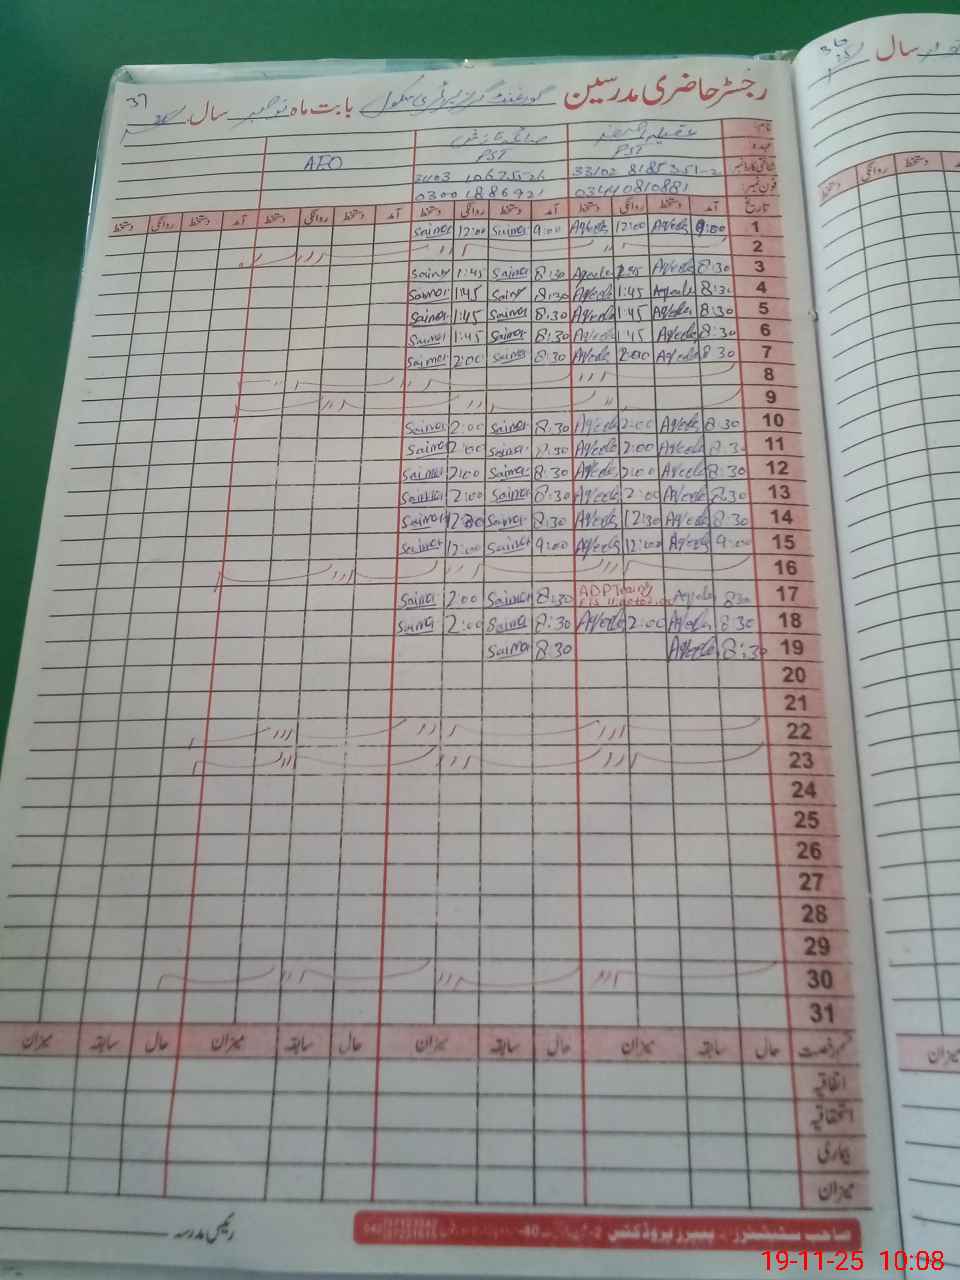 رجسٹر حاضری مدرسین گورنمنٹ گرلز پرائمری سکول بابت ماہ نومبر سال
37
نام
عہدہ PST PST AEO
شناختی کارڈ نمبر
فون نمبر 03440810881 03001886921
تاریخ آمد دستخط روانگی دستخط آمد دستخط روانگی دستخط آمد دستخط روانگی دستخط آمد دستخط روانگی دستخط
1 9:00 Aqeela 12:00 Aqeela 9:00 Saima 12:00 Saima
2
3 8:30 Aqeela 1:45 Aqeela 8:30 Saima 1:45 Saima
4 8:30 Aqeela 1:45 Aqeela 8:30 Saima 1:45 Saima
5 8:30 Aqeela 1:45 Aqeela 8:30 Saima 1:45 Saima
6 8:30 Aqeela 1:45 Aqeela 8:30 Saima 1:45 Saima
7 8:30 Aqeela 2:00 Aqeela 8:30 Saima 2:00 Saima
8
9
10 8:30 Aqeela 2:00 Aqeela 8:30 Saima 2:00 Saima
11 8:30 Aqeela 2:00 Aqeela 8:30 Saima 2:00 Saima
12 8:30 Aqeela 2:00 Aqeela 8:30 Saima 2:00 Saima
13 8:30 Aqeela 2:00 Aqeela 8:30 Saima 2:00 Saima
14 8:30 Aqeela 12:30 Aqeela 8:30 Saima 12:30 Saima
15 9:00 Aqeela 12:00 Aqeela 9:00 Saima 12:00 Saima
16
17 8:30 Aqeela 8:30 Saima 2:00 Saima
18 8:30 Aqeela 2:00 Aqeela 8:30 Saima 2:00 Saima
19 8:30 Aqeela 8:30 Saima
20
21
22
23
24
25
26
27
28
29
30
31
قسم رخصت حال سابقہ میزان حال سابقہ میزان حال سابقہ میزان حال سابقہ میزان
اتفاقیہ
استحقاقیہ
بیماری
میزان
صاحب سٹیشنرز پیپر پروڈکٹس
رئیس مدرسہ
سال
آمد دستخط روانگی دستخط
میزان
19-11-25 10:08